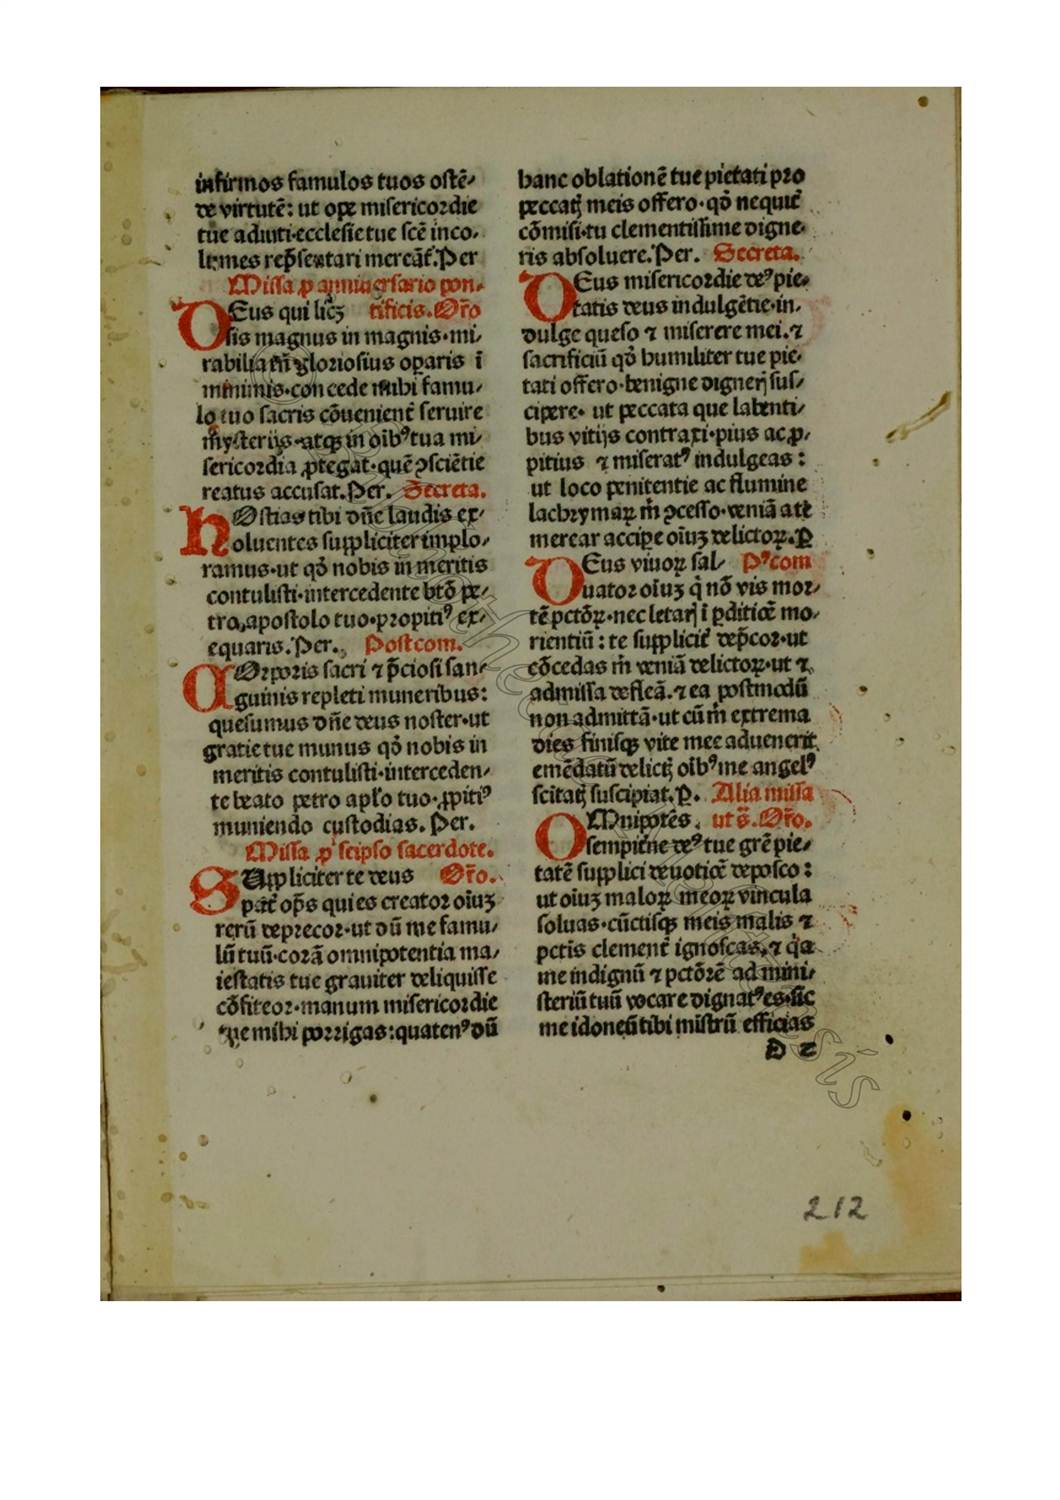 infirmos famulos tuos ostē-
de virtutē: ut ope misericordie
tue adiuti·ecclesie tue scē inco-
lumes rep̄sentari mereāt᷑.Per
Missa ꝓ anniuersario pon-
DEus qui licꝫ tificis.Or̄o
sis magnus in magnis·mi-
rabilia tn̄ gloriosius oꝑaris ī
minimis·concede mihi famu-
lo tuo sacris cōuenient᷑ seruire
mysterijs·atqꝫ in oib⁹ tua mi-
sericordia ꝓtegat·quē ꝯsciētie
reatus accusat.Per. Secreta.
HOstias tibi dn̄e laudis ex-
oluentes suppliciter implo-
ramus·ut qd̄ nobis in meritis
contulisti·intercedente btō pe-
tro apostolo tuo·propiti⁹ ex-
equaris.Per. Postcom.
COrporis sacri ⁊ p̄ciosi san-
guinis repleti muneribus:
quesumus dn̄e deus noster·ut
gratie tue munus qd̄ nobis in
meritis contulisti·interceden-
te beato petro apl̄o tuo·ꝓpiti⁹
muniendo custodias. Per.
Missa ꝓ seipso sacerdote.
SUppliciter te deus Or̄o.
pat᷑ op̄s qui es creator oiuꝫ
rerū deprecor·ut dū me famu-
lū tuū·corā omnipotentia ma-
iestatis tue grauiter deliquisse
cōfiteor·manum misericordie
tue mihi porrigas:quaten⁹ dū
hanc oblationē tue pietati pro
peccatꝭ meis offero·qd̄ nequit᷑
cōmisi·tu clementissime digne-
ris absoluere.Per. Secreta.
DEus misericordie de⁹ pie-
tatis deus indulgētie·in-
dulge queso ⁊ miserere mei.⁊
sacrificiū qd̄ humiliter tue pie-
tati offero·benigne dignerꝭ sus-
cipere· ut peccata que labenti-
bus vitijs contraxi·pius ac ꝓ-
pitius ⁊ miserat⁹ indulgeas:
ut loco penitentie ac flumine
lachrymaꝝ m̄ ꝯcesso·veniā a te
merear accipe oiuꝫ delictoꝝ.P̲
DEus viuoꝝ sal- P⁹com
uator oiuꝫ q̄ nō vis mor-
tē pctōꝝ·nec letarꝭ ī ꝑditiōe mo-
rientiū: te supplicit᷑ dep̄cor·ut
cōcedas m̄ veniā delictoꝝ·ut ⁊
admissa defleā.⁊ ea postmodū
non admittā·ut cū m̄ extrema
dies finisqꝫ vite mee aduenerit
emēdatū delictꝭ oib⁹ me angel⁹
scitatꝭ suscipiat.P. Alia missa
OMnipotēs ut s̄.Or̄o.
sempit᷑ne de⁹ tue gr̄e pie-
tatē supplici deuotiōe deposco:
ut oiuꝫ maloꝝ meoꝝ vincula
soluas·cūctisqꝫ meis malis ⁊
pctis clement᷑ ignoscas.⁊ q̄a
me indignū ⁊ pctōrē ad mini-
steriū tuū vocare dignat⁹ es·sic
me idoneū tibi mīstrū efficias
D 2
212